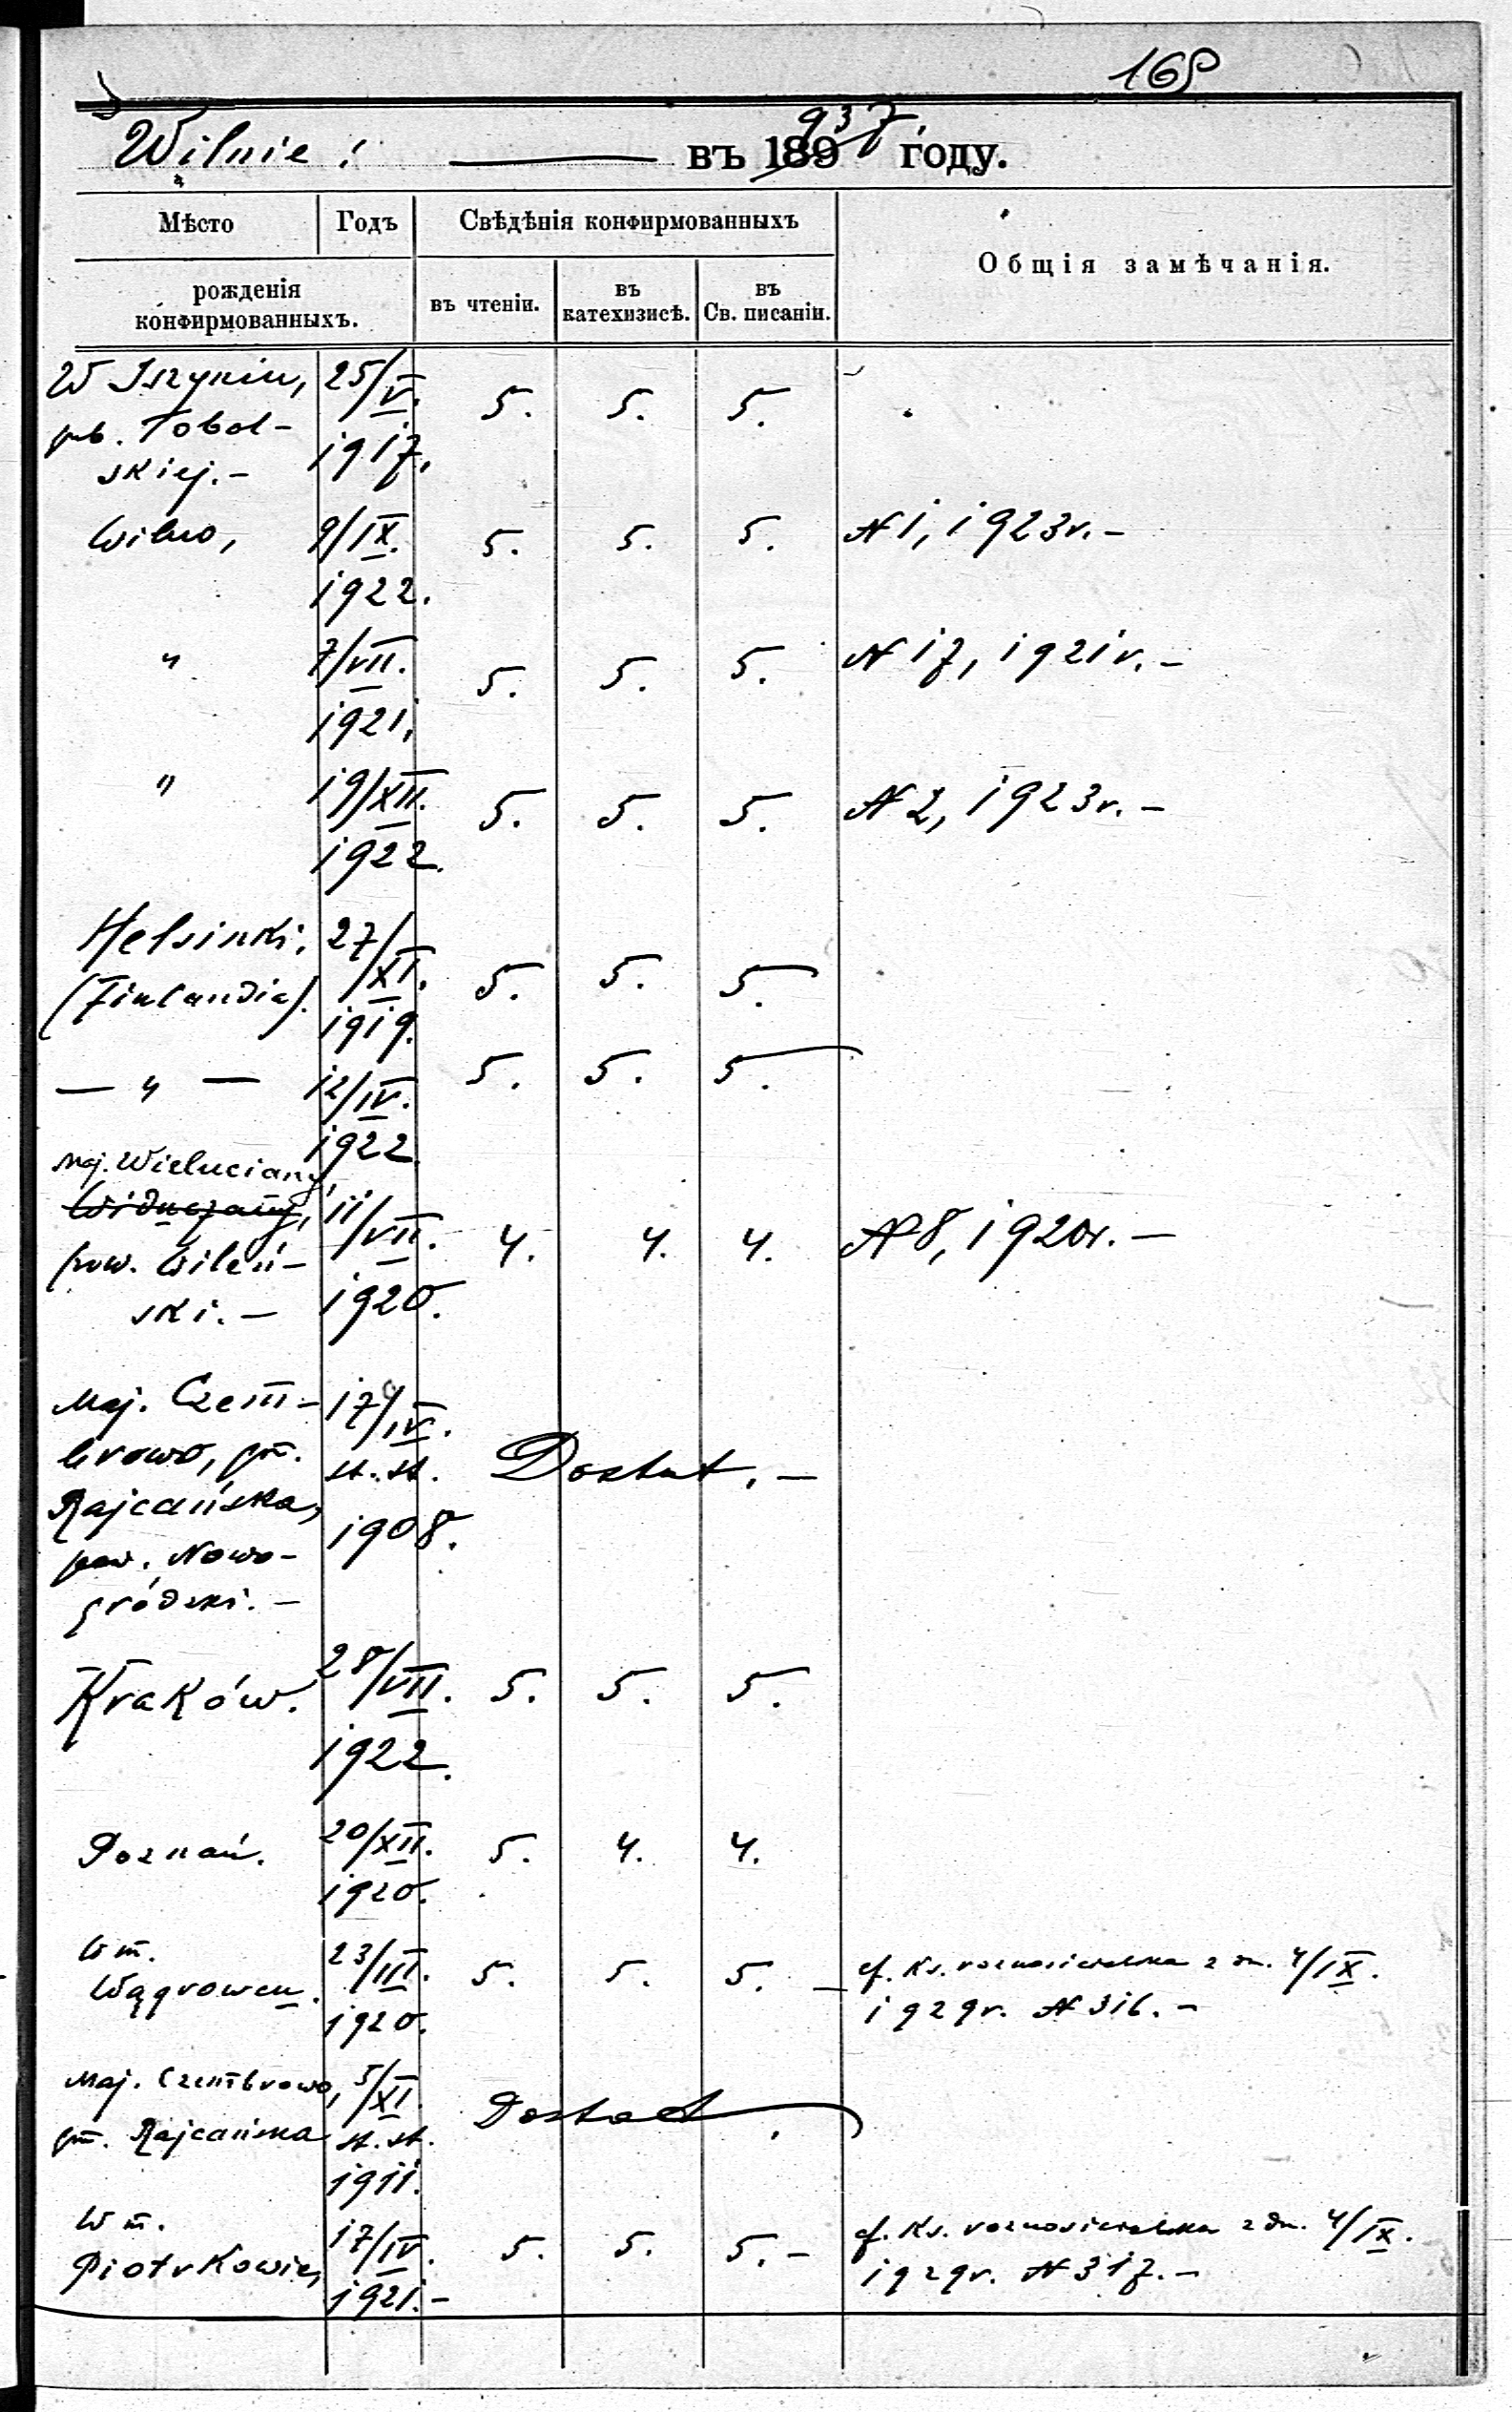 168
Wilnie: — въ 1897 937 году.
Мѣсто
Годъ
Свѣдѣнія конфирмованныхъ
Общія замѣчанія.
рожденія
конфирмованныхъ.
въ чтеніи.
въ
катехизисѣ.
въ
Св. писаніи.
W Iszymiu, 25/V.
gub. Tobol- 5. 5. 5.
skiej.- 1917.
Wilno, 9/IX. 5. 5. 5. N 1, 1923r.-
1922.
" 7/VII. 5. 5. 5. N 17, 1921r.-
1921.
" 19/XII. 5. 5. 5. N 2, 1923r.-
1922.
Helsinki. 27/XI. 5. 5. 5.
(Finlandia). 1919.
— " — 12/IV. 5. 5. 5.
1922
maj. Wieluciany,
11/VII. 4. 4. 4. N 8, 1920r.-
pow. Wileń-
ski.- 1920.
Maj. Czem- 17/IV.
brows, gm. st. st. Dostat.-
Rajcańska, 1908.
pow. Nowo-
gródzki.-
Kraków. 28/VII. 5. 5. 5.
1922.
Poznań. 20/XII. 5. 4. 4.
1920.
W m. 23/III. 5. 5. 5. — cf. Ks. z dn. 4/IX.
Wągrowcu. 1920. 1929r. N 316.-
Maj. Czembrowo, 5/XI.
gm. Rajcańska st. st. Dostat.
1911.
W m. 17/IV. 5. 5. 5.- cf. Ks. z dn. 4/IX.
Piotrkowie, 1921.- 1929r. N 317.-